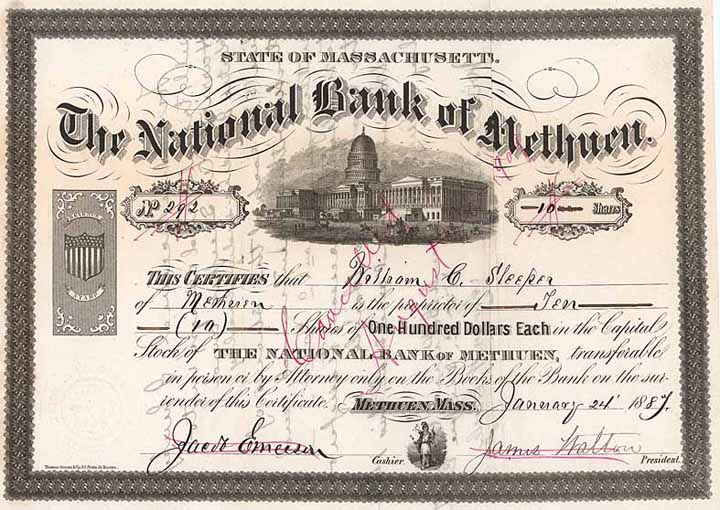 STATE OF MASSACHUSETTS.
The National Bank of Methuen.
No 292
10 Shares
This Certifies that William C. Sleeper
of Methuen is the proprietor of Ten
(10) Shares of One Hundred Dollars Each in the Capital
Stock of THE NATIONAL BANK OF METHUEN, transferable
in person or by Attorney only on the Books of the Bank on the sur-
render of this Certificate. METHUEN, MASS. January 24 1887.
Jacob Emerson Cashier. James Walton President.
Cancelled
August